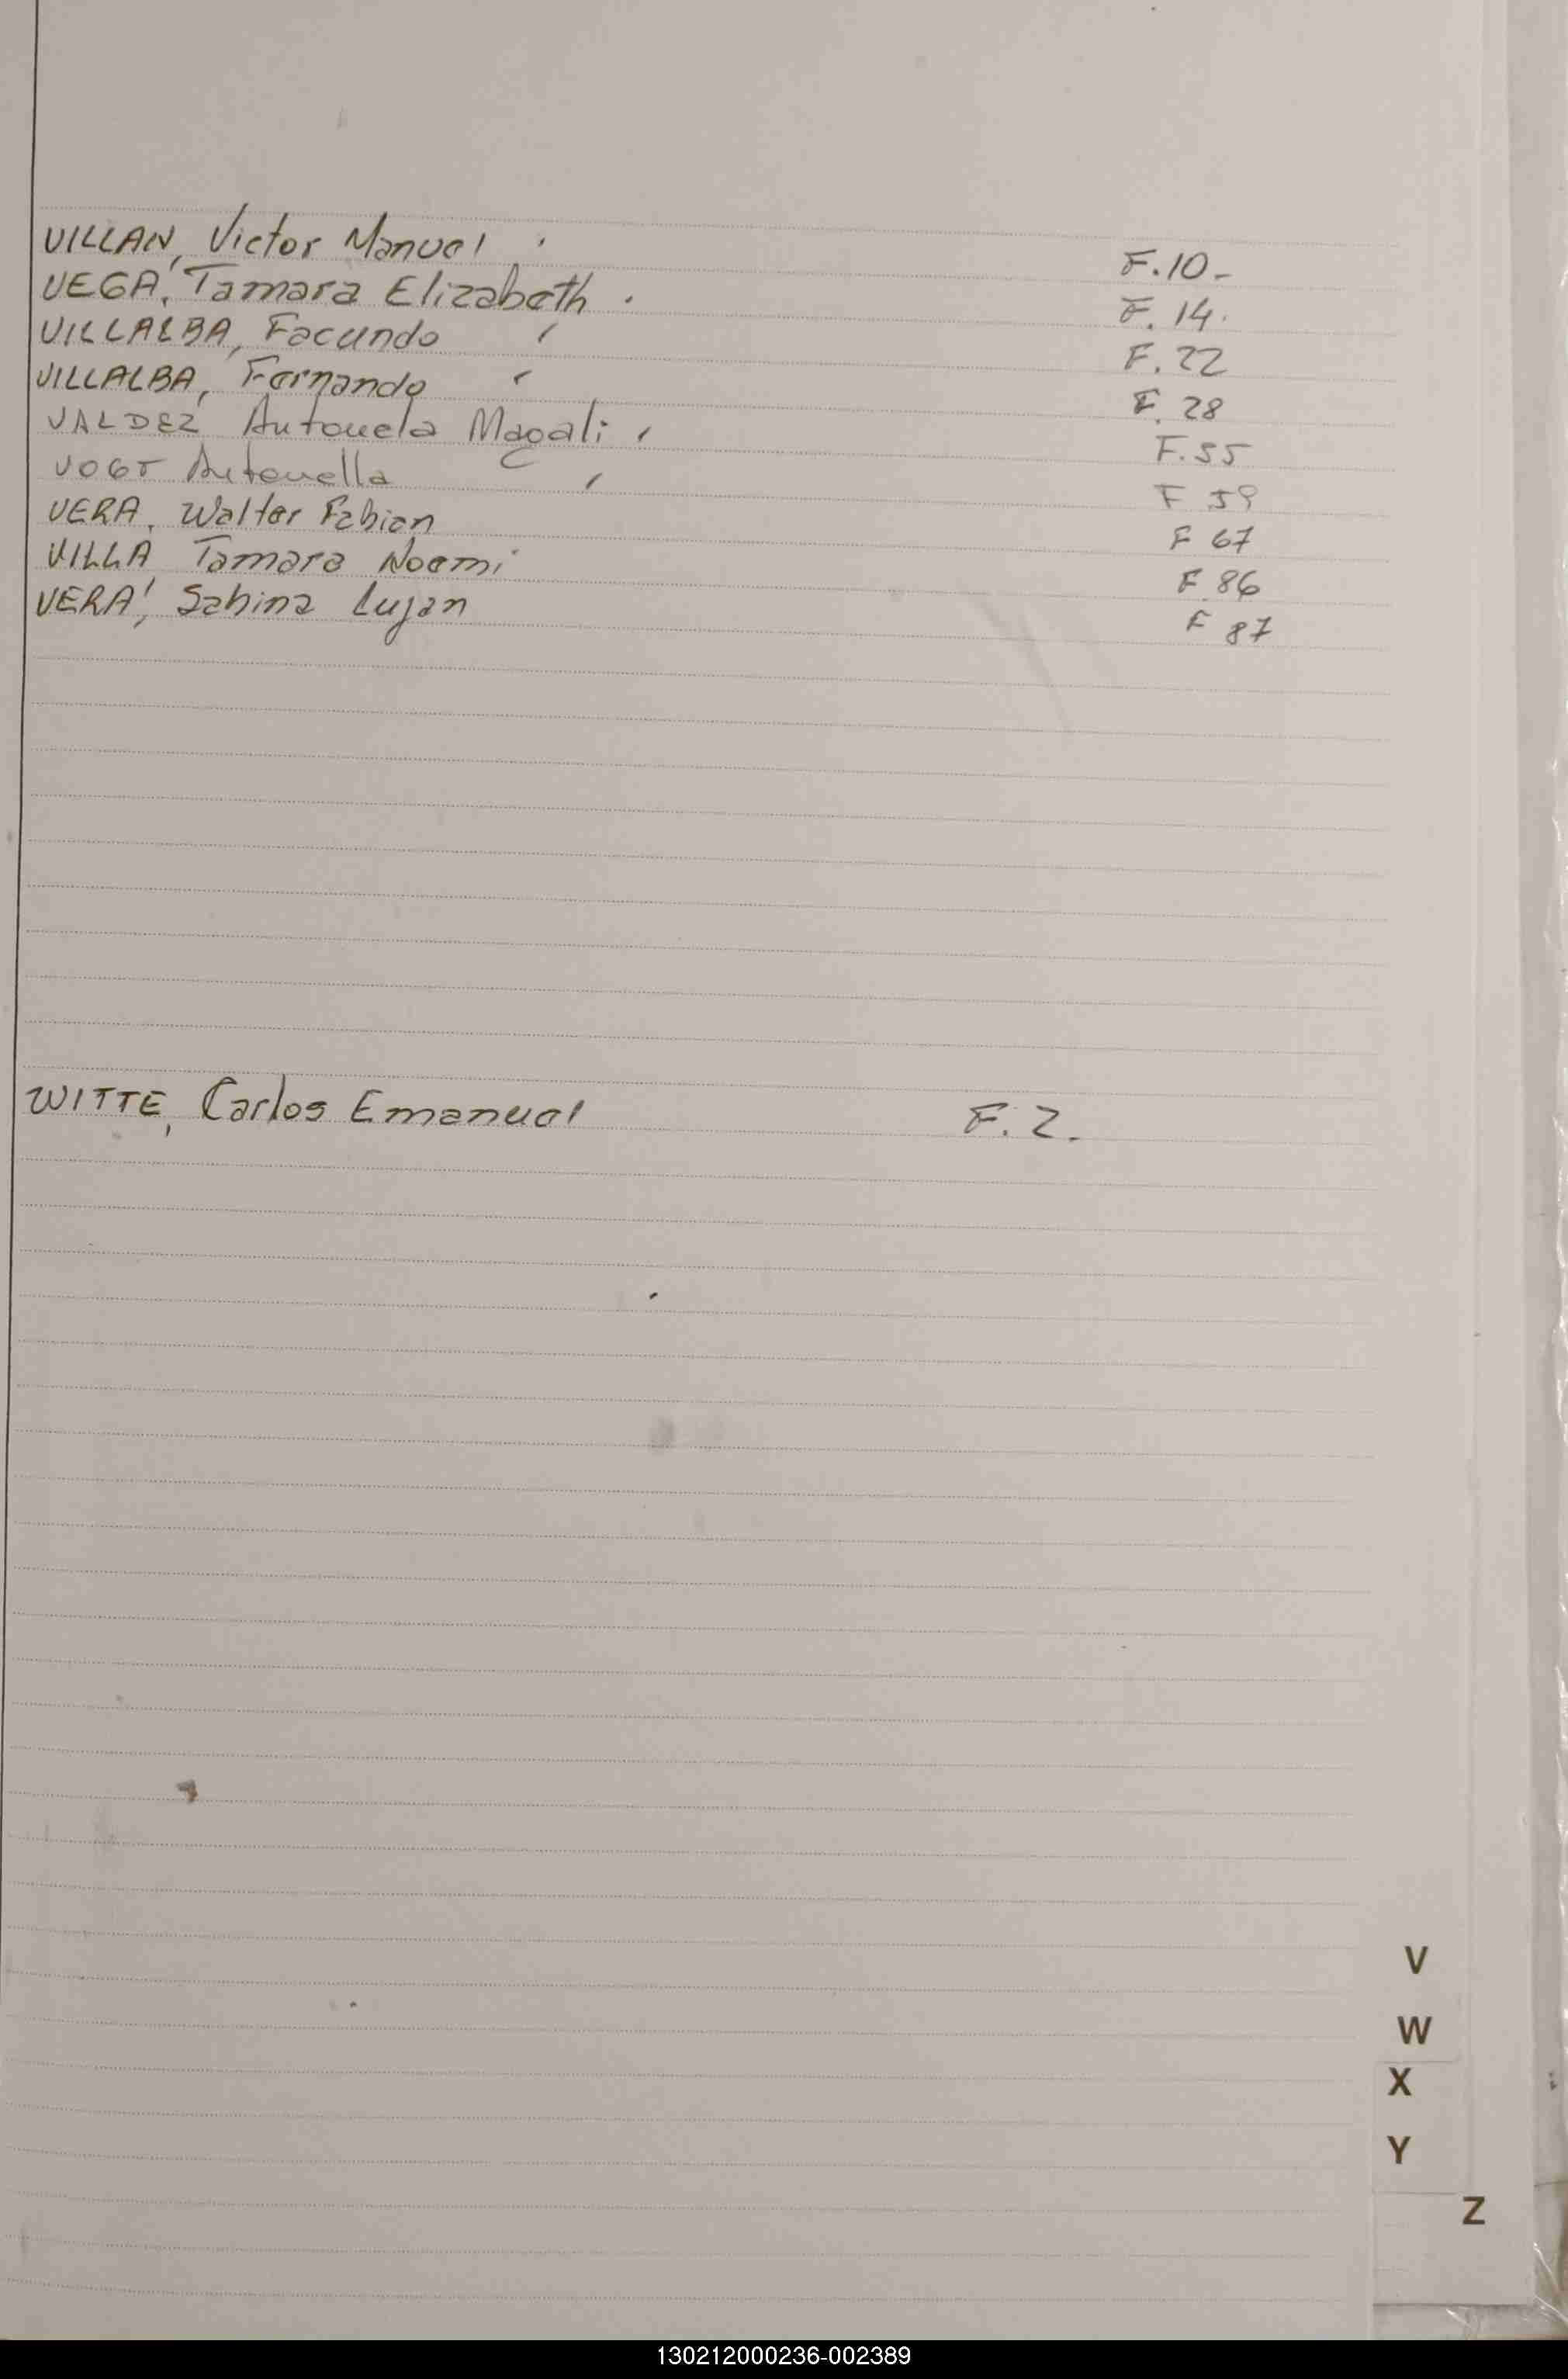 VILLAN, Victor Manuel F.10.-
VEGA, Tamara Elizabeth. F. 14.
VILLALBA, Facundo F. 22
VILLALBA, Fernando F. 28
VALDEZ Antonela Magali F. 55
VOGT Antonella F 59
VERA, Walter Fabian F 67
VILLA Tamara Noemi F. 86
VERA, Sabina Lujan F 87
WITTE, Carlos Emanuel F. 2.
V
W
X
Y
Z
130212000236-002389